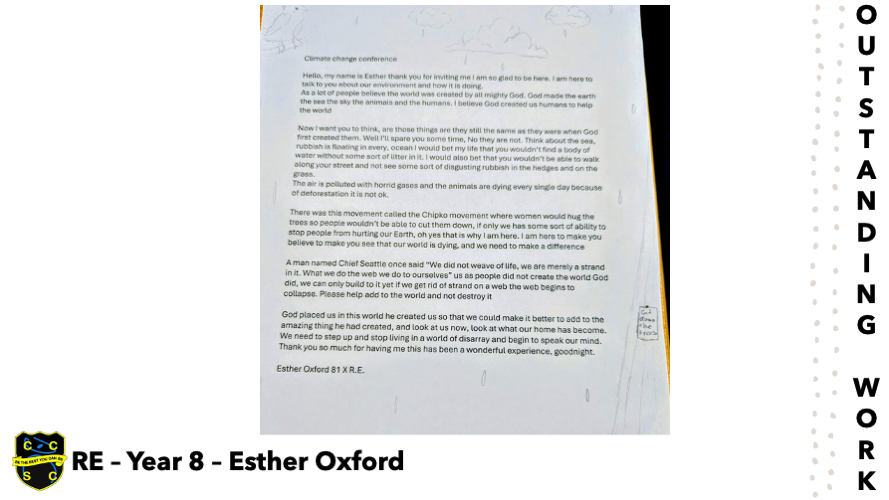 Climate change conference
Hello, my name is Esther thank you for inviting me I am so glad to be here. I am here to
talk to you about our environment and how it is doing.
As a lot of people believe the world was created by all mighty God. God made the earth
the sea the sky the animals and the humans. I believe God created us humans to help
the world
Now I want you to think, are those things are they still the same as they were when God
first created them. Well I'll spare you some time, No they are not. Think about the sea,
rubbish is floating in every, ocean I would bet my life that you wouldn't find a body of
water without some sort of litter in it. I would also bet that you wouldn't be able to walk
along your street and not see some sort of disgusting rubbish in the hedges and on the
grass.
The air is polluted with horrid gases and the animals are dying every single day because
of deforestation it is not ok.
There was this movement called the Chipko movement where women would hug the
trees so people wouldn't be able to cut them down, if only we has some sort of ability to
stop people from hurting our Earth, oh yes that is why I am here. I am here to make you
believe to make you see that our world is dying, and we need to make a difference
A man named Chief Seattle once said "We did not weave of life, we are merely a strand
in it. What we do the web we do to ourselves" us as people did not create the world God
did, we can only build to it yet if we get rid of strand on a web the web begins to
collapse. Please help add to the world and not destroy it
God placed us in this world he created us so that we could make it better to add to the
amazing thing he had created, and look at us now, look at what our home has become.
We need to step up and stop living in a world of disarray and begin to speak our mind.
Thank you so much for having me this has been a wonderful experience, goodnight.
Esther Oxford 81 X R.E.
Cut
down
the
trees
C C
BE THE BEST YOU CAN BE
S C
RE – Year 8 – Esther Oxford
OUTSTANDING WORK